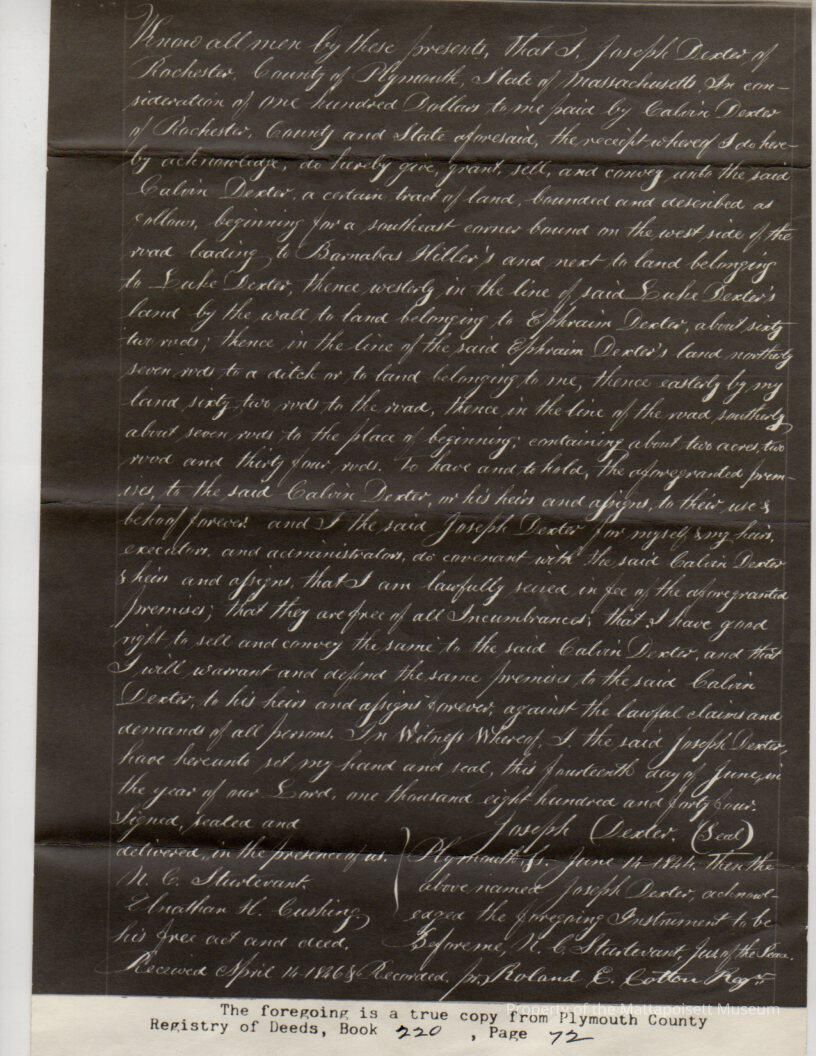 Know all men by these presents, that I, Joseph Dexter of
Rochester, County of Plymouth, State of Massachusetts, In con-
sideration of one hundred Dollars to me paid by Calvin Dexter
of Rochester, County and State aforesaid, the receipt whereof I do here-
by acknowledge, do hereby give, grant, sell, and convey unto the said
Calvin Dexter, a certain tract of land, bounded and described as
follows, beginning for a southeast corner bound on the west side of the
road leading to Barnabas Hiller's and next to land belonging
to Luke Dexter, thence westerly in the line of said Luke Dexter's
land by the wall to land belonging to Ephraim Dexter, about sixty
two rods; thence in the line of the said Ephraim Dexter's land northerly
seven rods to a ditch or to land belonging to me, thence easterly by my
land sixty two rods to the road, thence in the line of the road southerly
about seven rods to the place of beginning; containing about two acres, two
rood and thirty four rods. To have and to hold, the aforegranted prem-
ises, to the said Calvin Dexter, or his heirs and assigns, to their use &
behoof forever. and I the said Joseph Dexter for myself & my heirs,
executors, and administrators, do covenant with the said Calvin Dexter
& heirs and assigns, that I am lawfully seized in fee of the aforegranted
premises; that they are free of all Incumbrances; that I have good
right to sell and convey the same to the said Calvin Dexter, and that
I will warrant and defend the same premises to the said Calvin
Dexter, to his heirs and assigns forever, against the lawful claims and
demands of all persons. In Witness Whereof, I, the said Joseph Dexter,
have hereunto set my hand and seal, this fourteenth day of June, in
the year of our Lord, one thousand eight hundred and forty four.
Signed, sealed and Joseph Dexter. (Seal)
delivered, in the presence of us. Plymouth, Ss. June 14 1844. Then the
N. C. Sturtevant. above named Joseph Dexter, acknowl-
Elnathan H. Cushing edged the foregoing Instrument to be
his free act and deed, Before me, N. C. Sturtevant, Jus. of the Peace.
Received April 14 1846 & Recorded, pr, Roland E. Cotton Regr.
The foregoing is a true copy from Plymouth County
Registry of Deeds, Book 220 , Page 72
Property of the Mattapoisett Museum